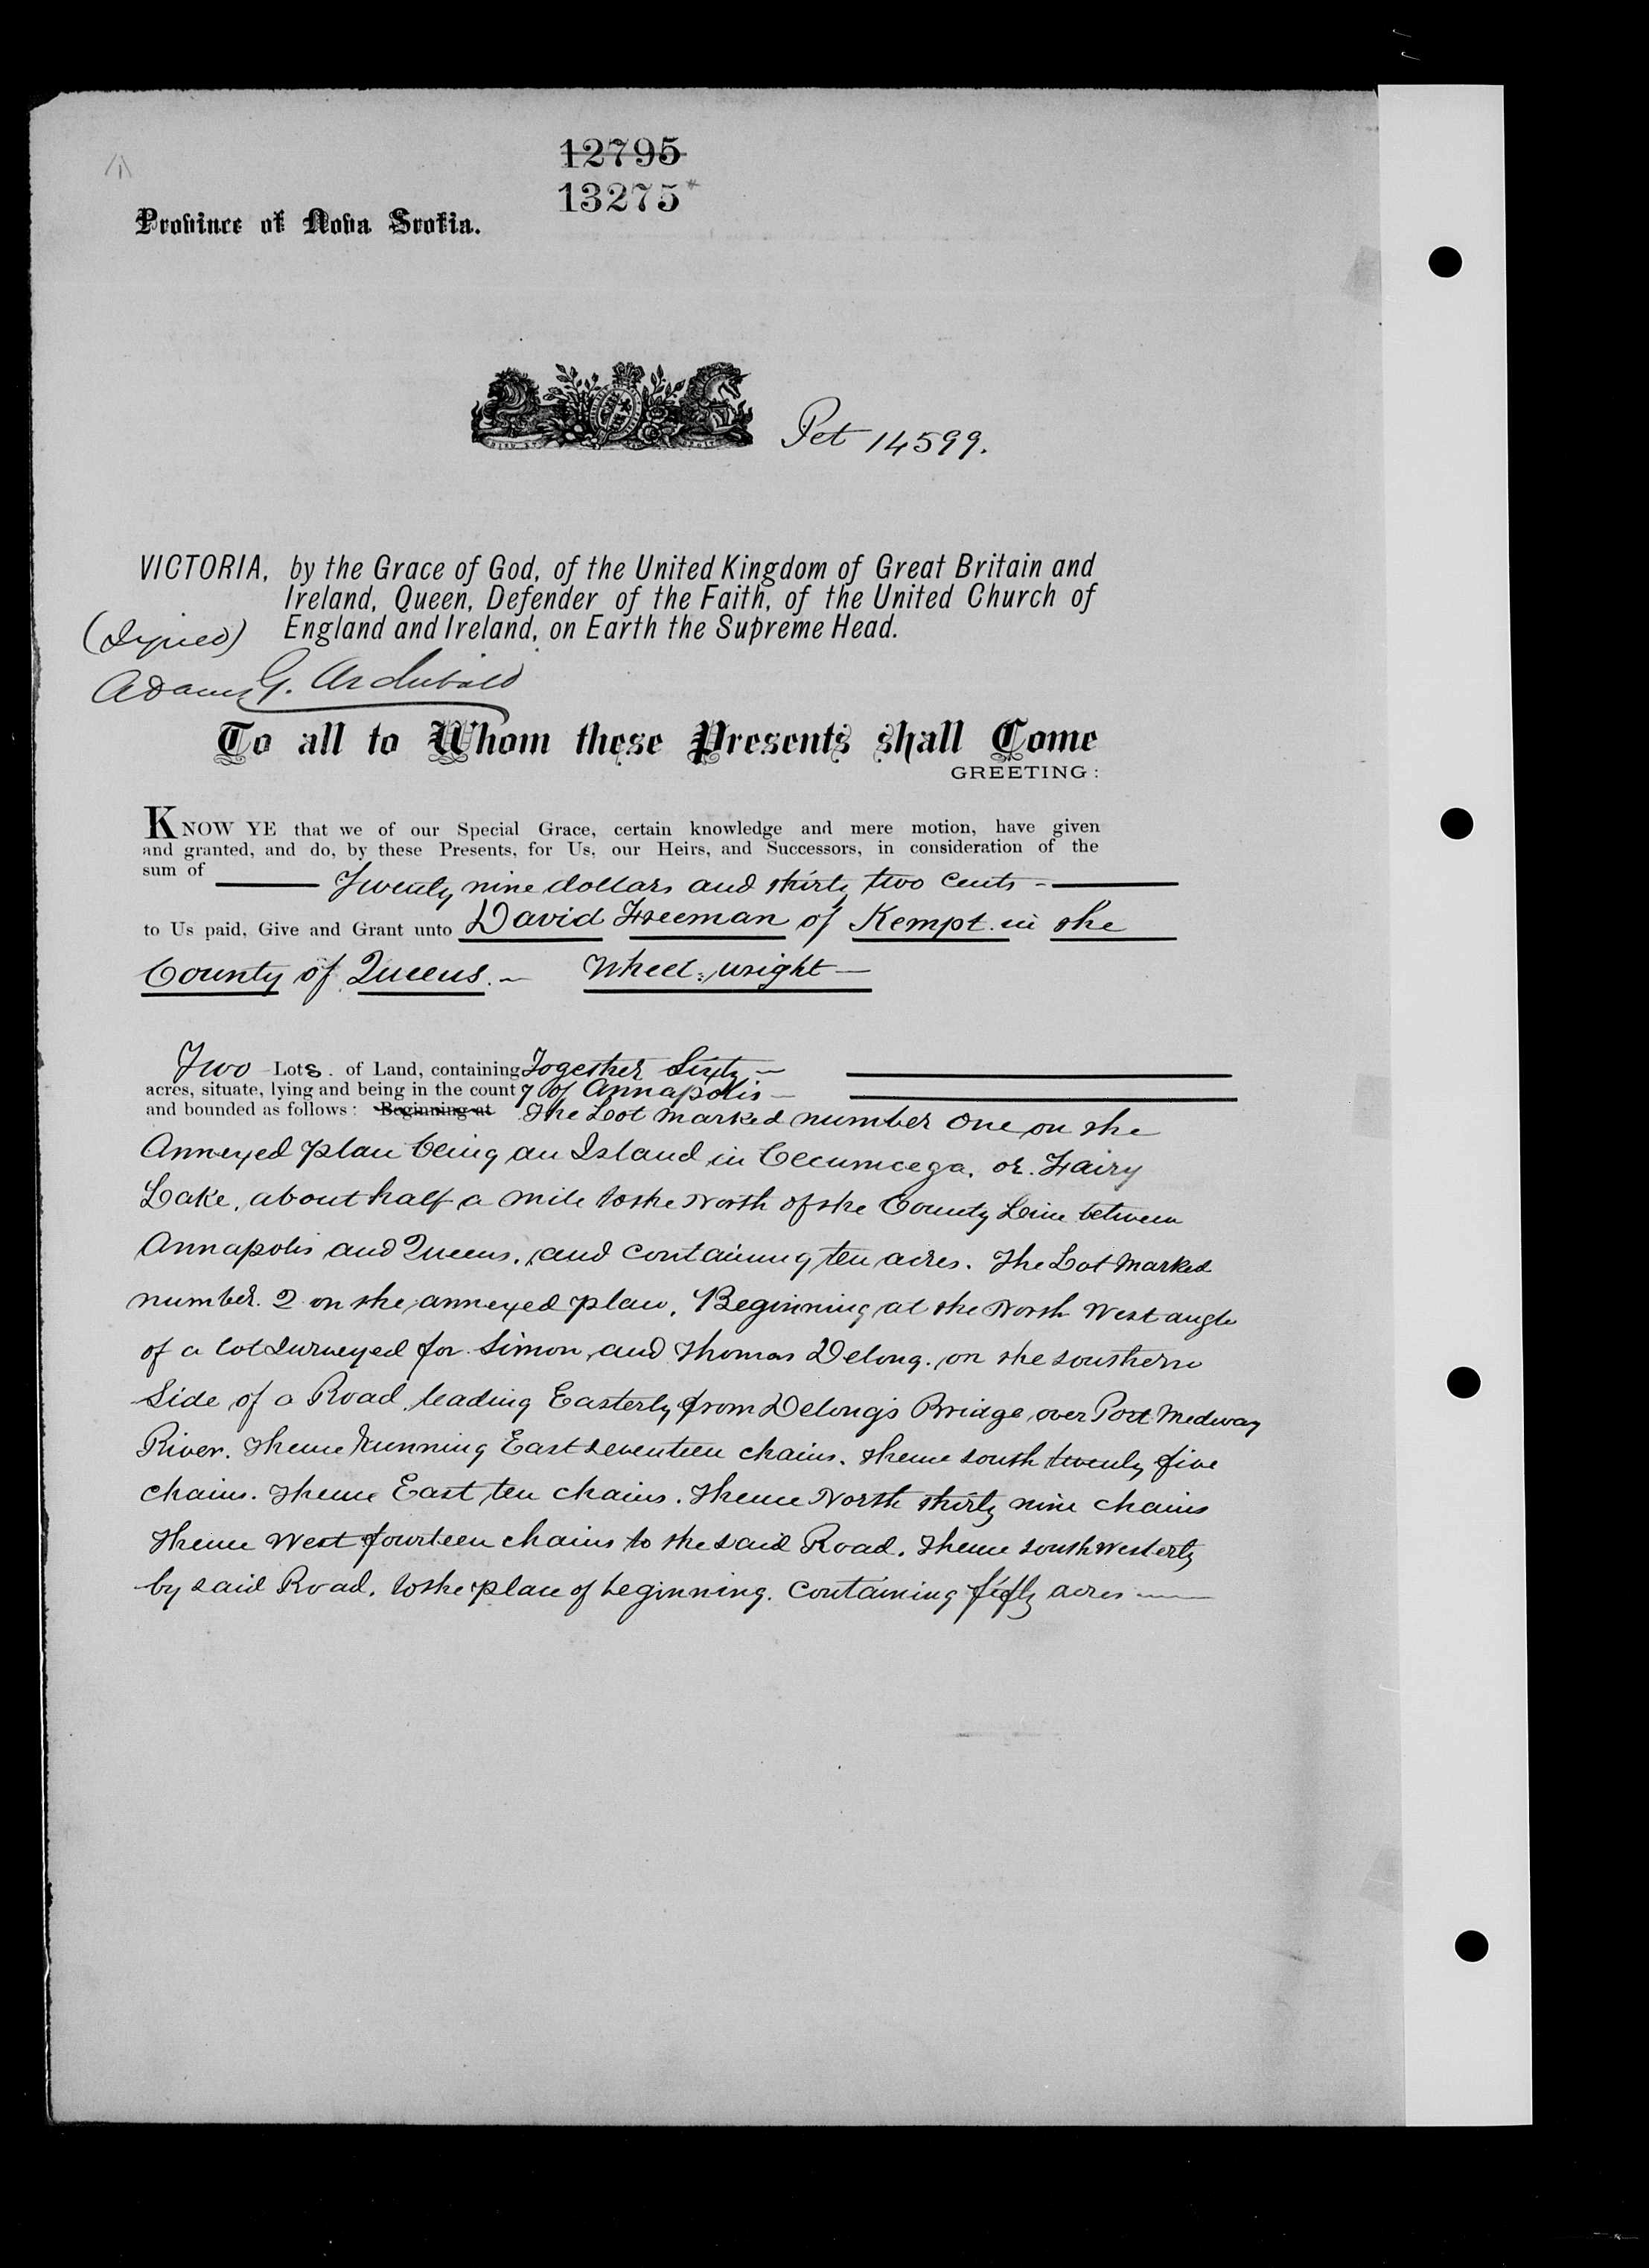 12795
13275*
Province of Nova Scotia.
Pet 14599.
VICTORIA, by the Grace of God, of the United Kingdom of Great Britain and
Ireland, Queen, Defender of the Faith, of the United Church of
England and Ireland, on Earth the Supreme Head.
(Signed)
Adams G. Archibald
To all to Whom these Presents shall Come
GREETING:
KNOW YE that we of our Special Grace, certain knowledge and mere motion, have given
and granted, and do, by these Presents, for Us, our Heirs, and Successors, in consideration of the
sum of Twenty nine dollars and thirty two Cents -
to Us paid, Give and Grant unto David Freeman of Kempt. in the
County of Queens. - Wheel:wright -
Two Lots. of Land, containing Together Sixty -
acres, situate, lying and being in the county of Annapolis -
and bounded as follows: Beginning at The Lot marked number One on the
Annexed plan being an Island in Cecumcega, or. Fairy
Lake, about half a mile to the North of the County Line between
Annapolis and Queens., and containing ten acres. The Lot Marked
number. 2 on the annexed plan, Beginning at the North West angle
of a lot Surveyed for Simon and Thomas Delong., on the southern
Side of a Road leading Easterly from Delong's Bridge over Port Medway
River. Thence Running East seventeen chains. Thence south twenty five
chains. Thence East ten chains. Thence North thirty nine chains
Thence West fourteen chains to the said Road. Thence southwesterly
by said Road, to the place of beginning. Containing fifty acres